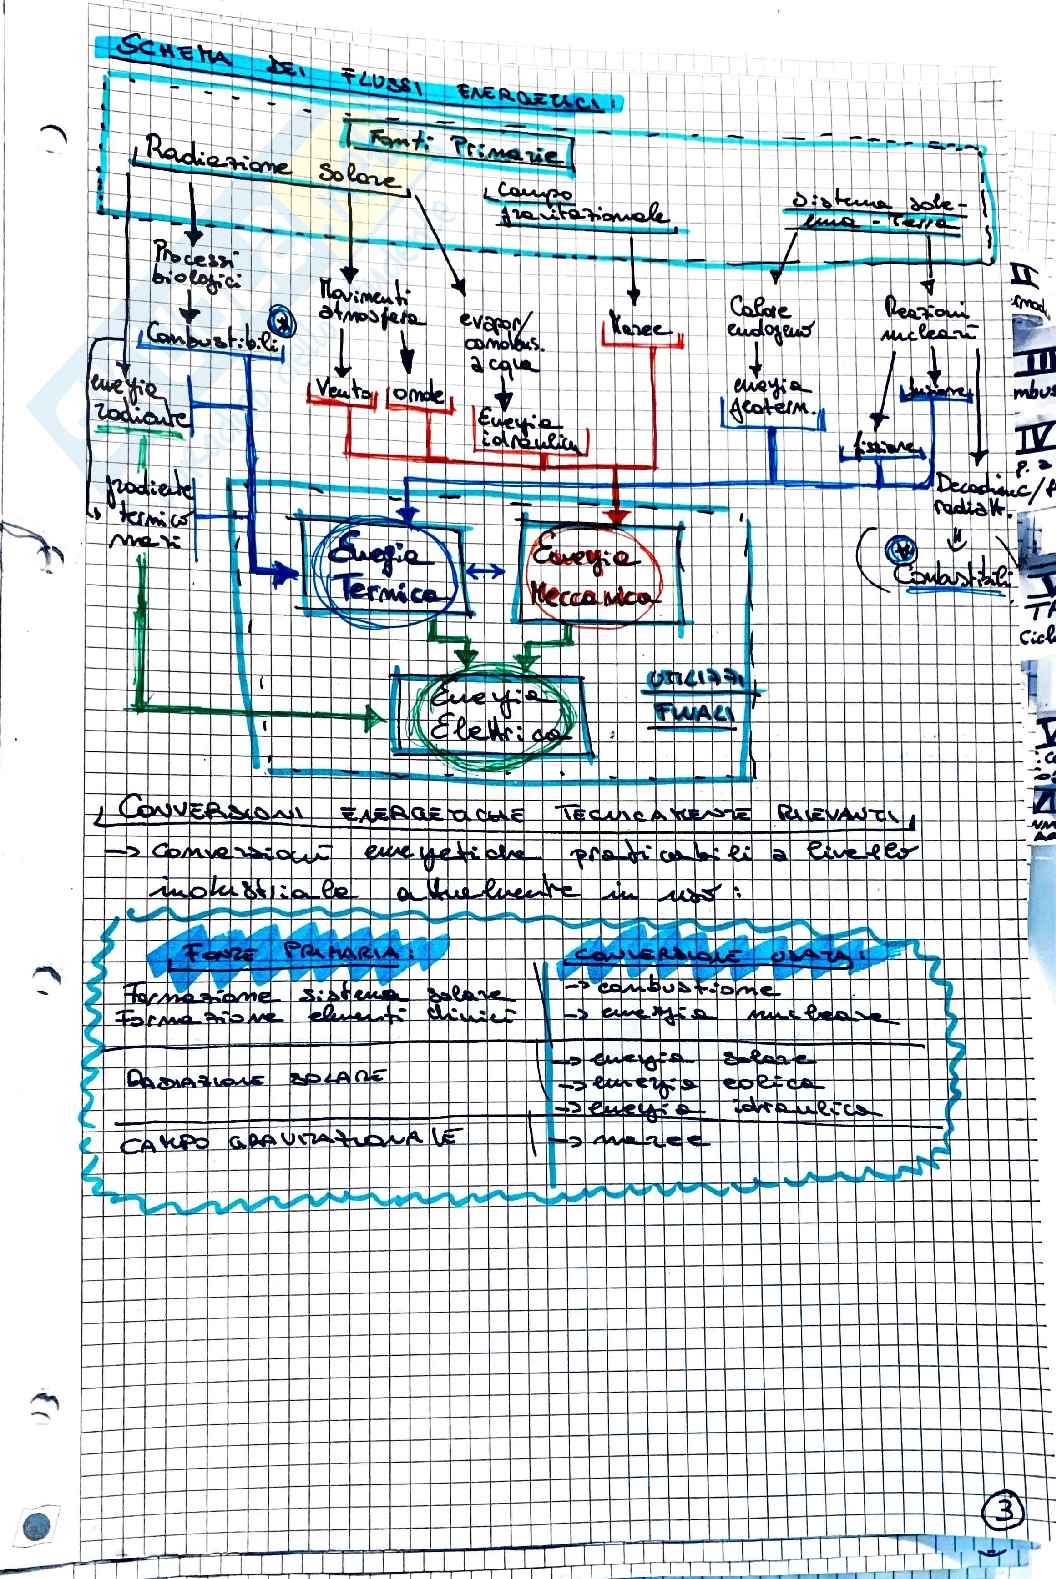 SCHEMA DEI FLUSSI ENERGETICI:
Fonti Primarie
Radiazione Solare
Campo
gravitazionale
sistema sole-
luna-Terra
Processi
biologici
Combustibili
Movimenti
atmosfera
evapor/
condens.
acqua
Maree
Calore
endogeno
Reazioni
nucleari
energia
radiante
Vento
onde
Energia
idraulica
energia
geoterm.
fusione
fissione
Decadim
radiatt.
Combustibili
gradiente
termico
mari
Energia
Termica
Energia
Meccanica
Energia
Elettrica
UTILIZZI
FINALI
CONVERSIONI ENERGETICHE TECNICAMENTE RILEVANTI
→ conversioni energetiche praticabili a livello
industriale attualmente in uso:
FONTE PRIMARIA:
CONVERSIONE USATA:
Formazione sistema solare
Formazione elementi chimici
→ combustione
→ energia nucleare
RADIAZIONE SOLARE
→ energia solare
→ energia eolica
→ energia idraulica
CAMPO GRAVITAZIONALE
→ maree
3
II
III
mbus
IV
Cicl
V